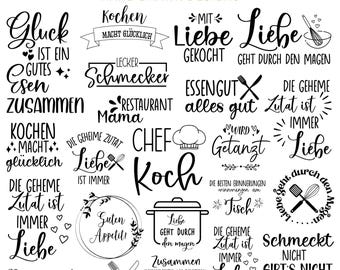 Glück
IST EIN
GUTES
Essen
ZUSAMMEN
Kochen
MACHT GLÜCKLICH
LECKER
Schmecker
RESTAURANT
Mama
MIT
Liebe
GEKOCHT
Liebe
GEHT DURCH DEN MAGEN
ESSEN GUT
alles gut
DIE GEHEIME
Zutat ist
IMMER
Liebe
KOCHEN
MACHT
glücklich
DIE GEHEIME ZUTAT
Liebe
IST IMMER
CHEF
Koch
WIRD
Getanzt
DIE GEHEIME
Zutat ist
IMMER
Liebe
Guten
Appetit
Liebe
GEHT DURCH
den magen
DIE BESTEN ERINNERUNGEN
am
Tisch
Liebe geht durch den Magen
Schmeckt
NICHT
GIBT'S NICHT
Zusammen